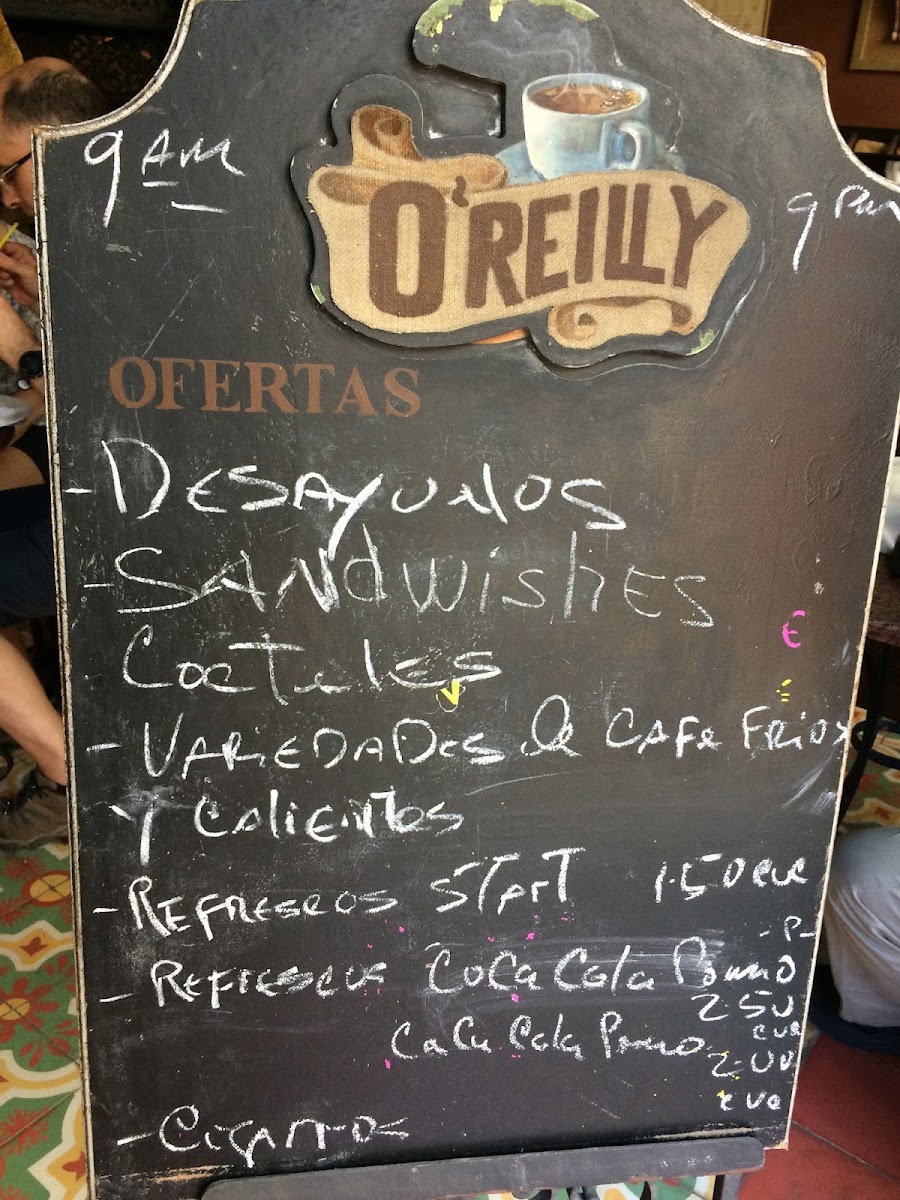 9 AM
O'REILLY
9 PM
OFERTAS
- DESAYUNOS
- SANDWISHES
COCTELES
- VARIEDADES de CAFE FRIOS
Y CALIENTES
- REFRESCOS START 1.50 CUC
-P-
- REFRESCOS COCA Cola
2.50
CUC
CoCa Cola
2.00
CUC
- CIGARROS